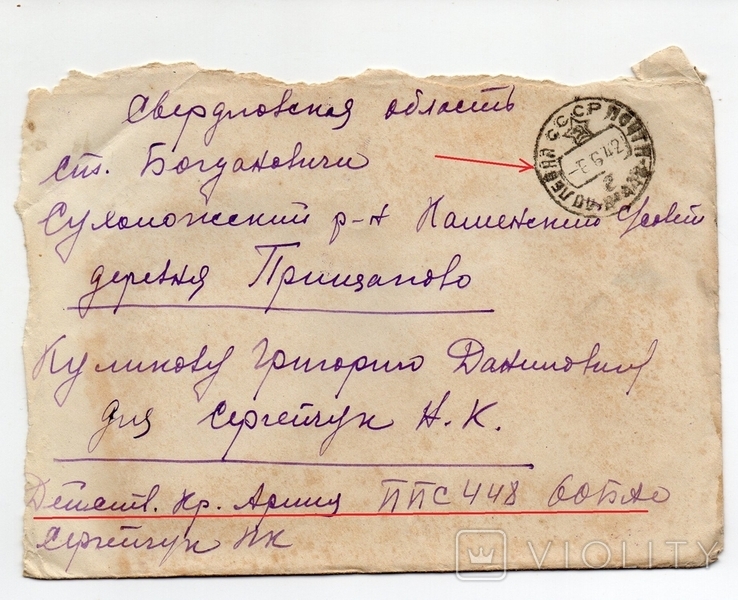 Свердловская область
ст. Богданович
Сухоложский р-н Каменский с/совет
деревня Прищаново
Куликову Григорию Даниловичу
для Сергейчук Н.К.
Действ. Кр. Армия ППС 448
Сергейчук НК
ПОЛЕВАЯ СССР ПОЧТА
-6 6 42
VIOLITY